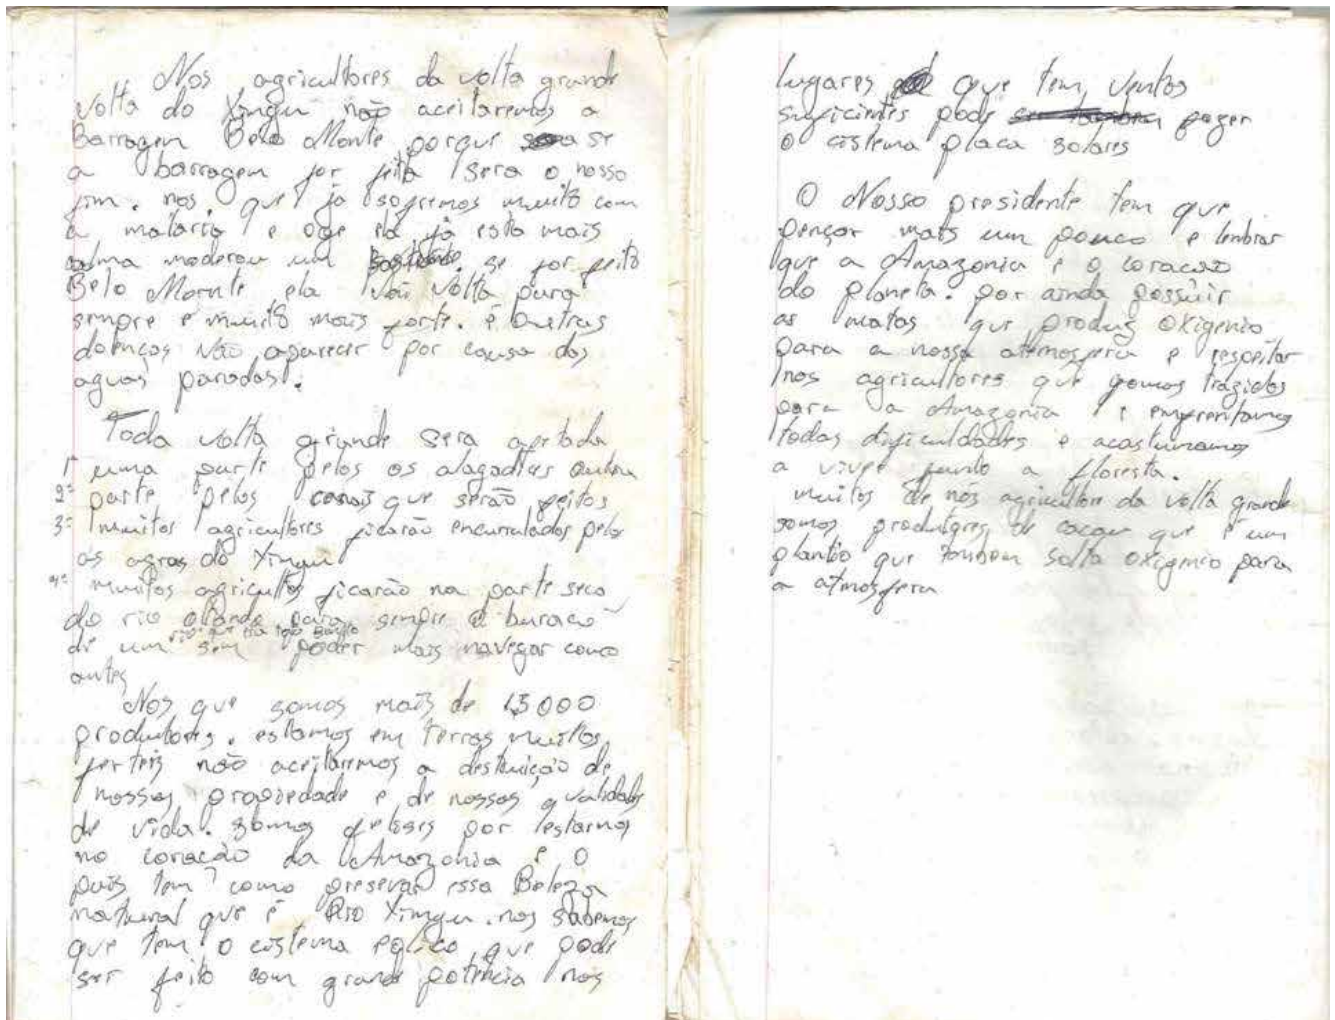 Nos agricultores da volta grande
volta do Xingu não aceitaremos a
Barragem Belo Monte porque se
a barragem for feita sera o nosso
fim. nos que já sofremos muito com
a malária e oge ela já esta mais
calma moderou um se for feito
Belo Monte ela vai volta para
sempre e muito mais forte. é Outras
doenças vão aparecer por causa das
aguas paradas.
Toda volta grande sera afetada
1º uma parte pelos os alagadias outra
2º parte pelos canais que serão feitos
3º muitos agricultores ficarão encurralados pelo
as agras do Xingu
4º muitos agricultos ficarão na parte seca
do rio olhando para sempre o buraco
rio que era tão
de um sem poder mais navegar como
antes
Nos que somos mais de 15000
produtores. estamos em terras muitos
ferteis não aceitaremos a destruição de
nossas propiedade e de nossas qualidade
de vida. somos felises por estarmos
no coração da Amazonia e o
pais tem como preservar essa Beleza
natural que é Rio Xingu. nos sabemos
que tem o cistema eolico que pode
ser feito com grande potência nos
lugares que tem ventos
suficientes pode fazer
o cistema placa solares
O Nosso presidente tem que
pençar mais um pouco e lembrar
que a Amazonia é o coracao
do planeta. por ainda possuir
as matas que produz oxigenio
para a nossa atemosfera e respeitar
nos agricultores que fomos trazidos
para a Amazonia e emfrentamos
todas dificuldades e acostumamos
a viver junto a floresta.
muitos de nós agricultore da volta grande
somos produtores de cacau que é um
plantio que tambem solta oxigenio para
a atmosfera